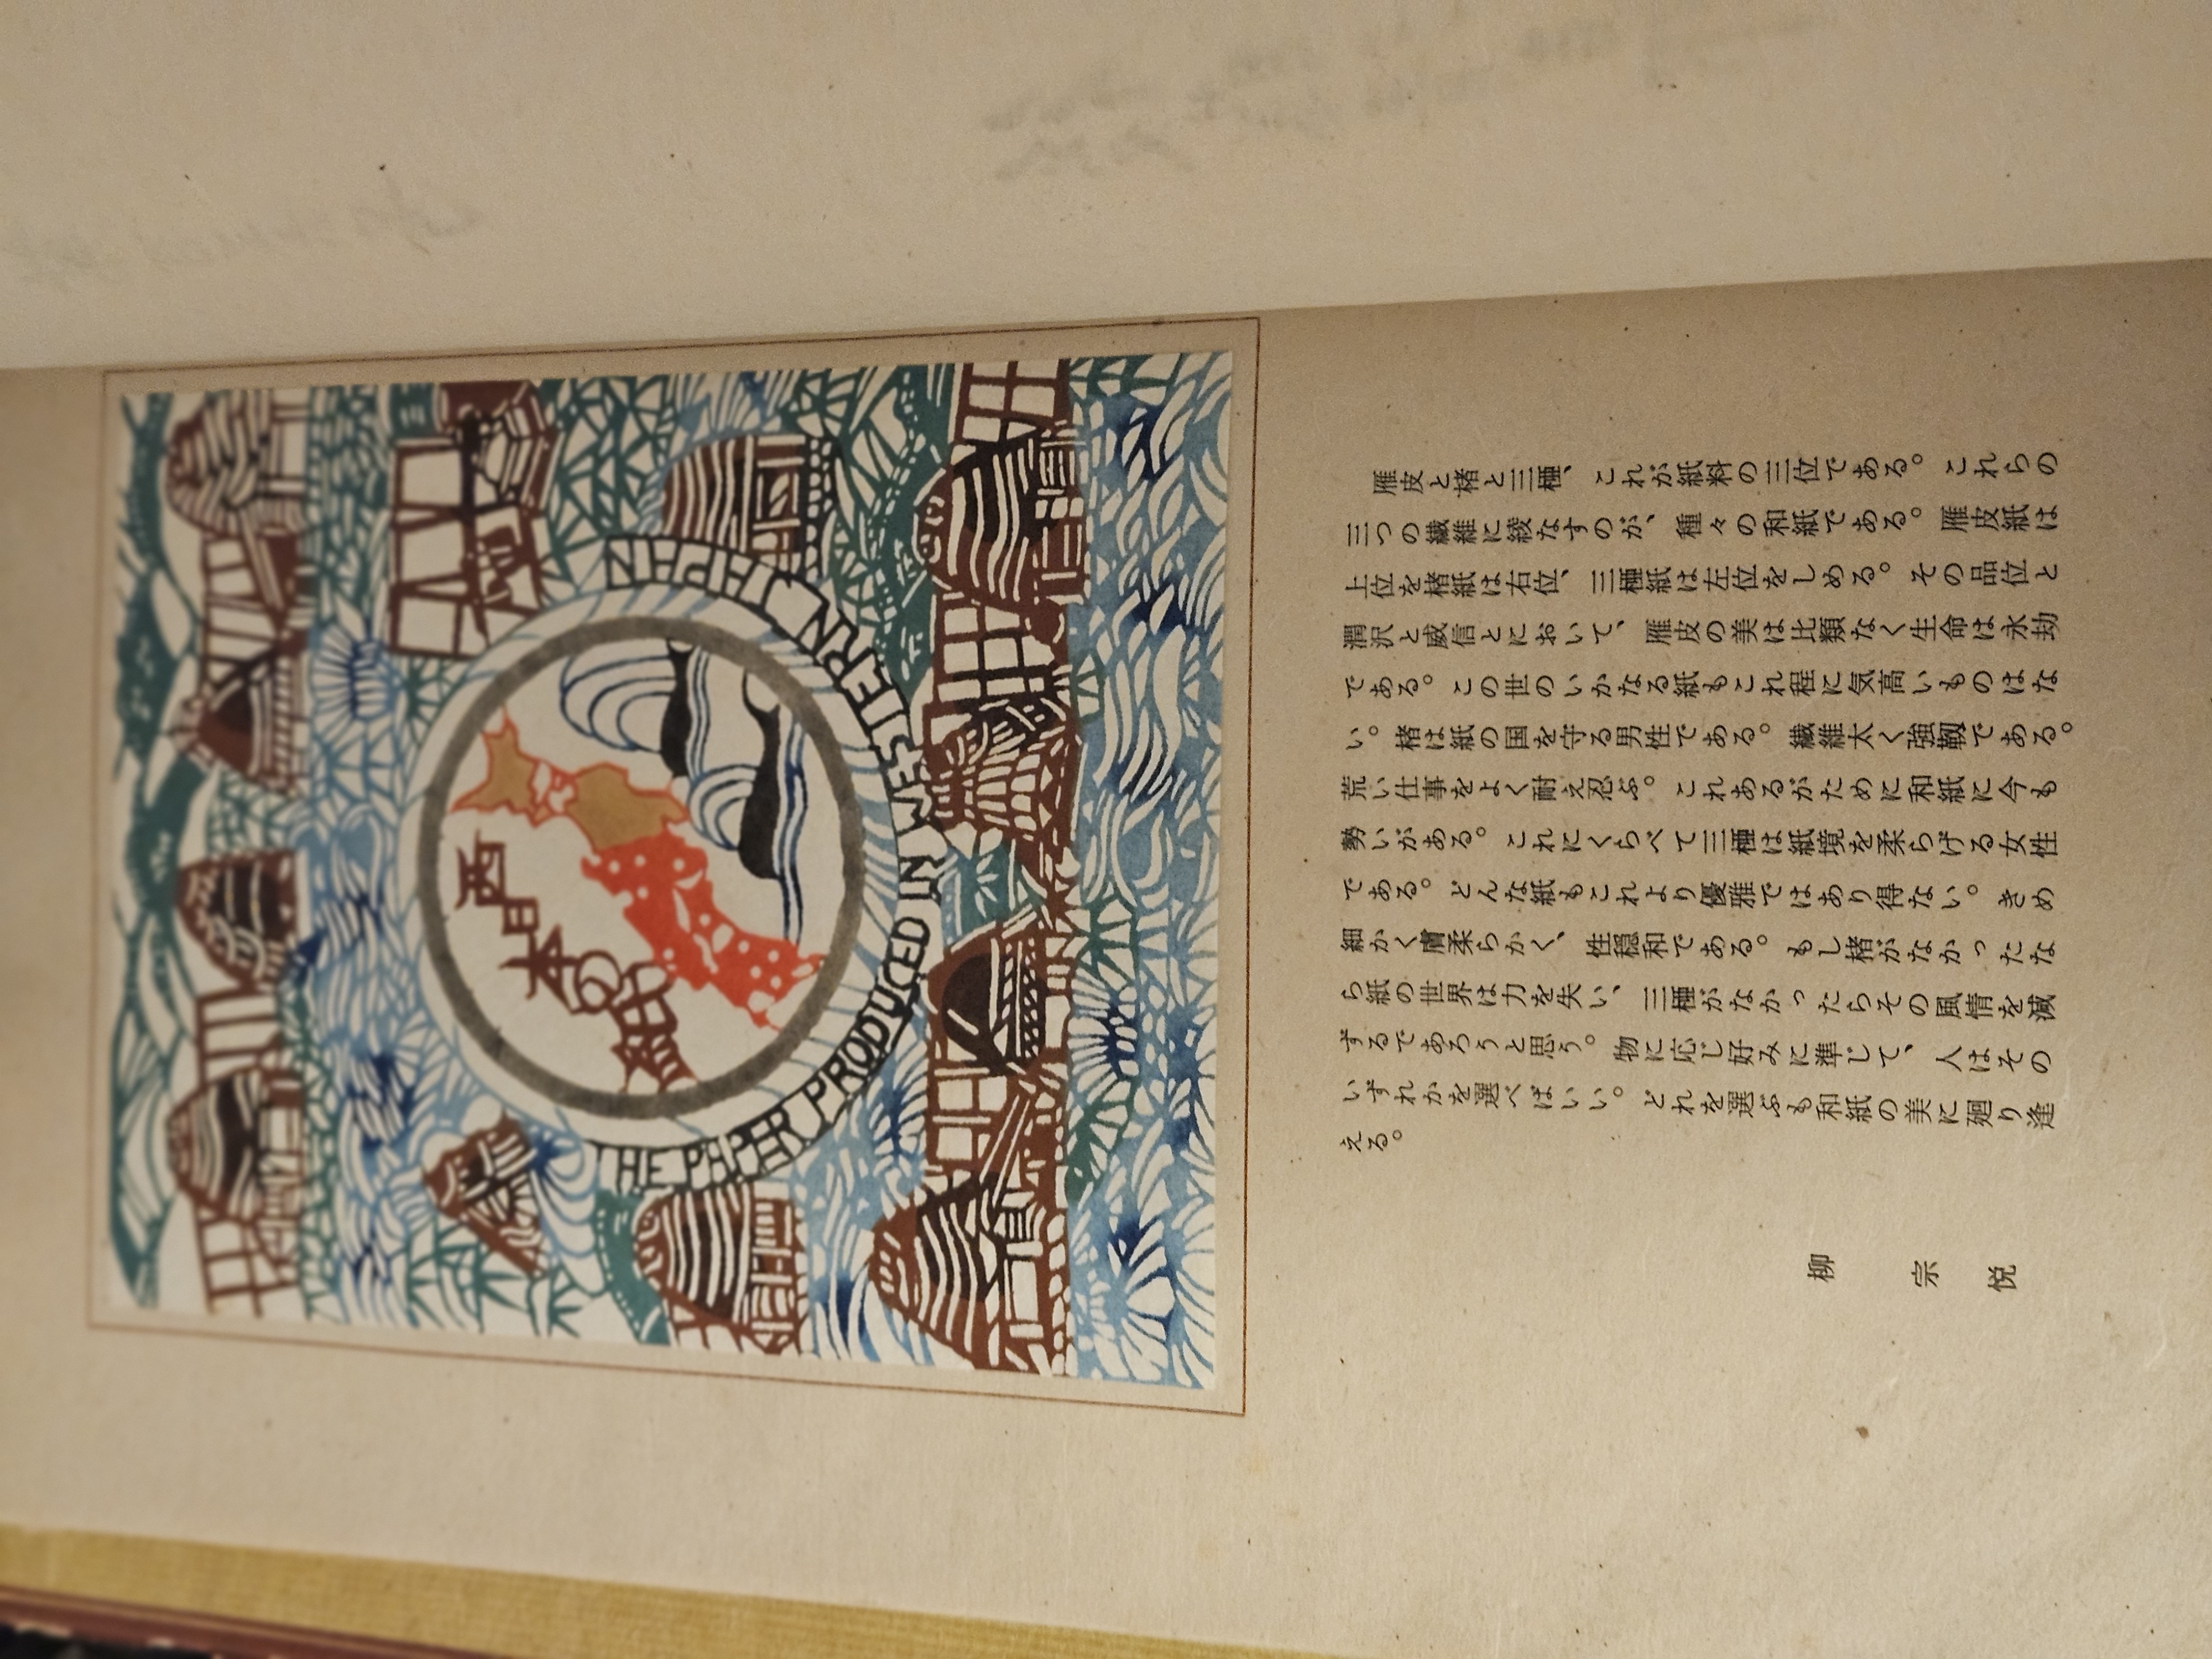 西日本の紙
THE PAPER PRODUCED IN WESTERN JAPAN
雁皮と楮と三椏、これが紙料の三位である。これらの
三つの繊維に綾なすのが、種々の和紙である。雁皮紙は
上位を楮紙は右位、三椏紙は左位をしめる。その品位と
潤沢と威信とにおいて、雁皮の美は比類なく生命は永劫
である。この世のいかなる紙もこれ程に気高いものはな
い。楮は紙の国を守る男性である。繊維太く強靱である。
荒い仕事をよく耐え忍ぶ。これあるがために和紙に今も
勢いがある。これにくらべて三椏は紙境を柔らげる女性
である。どんな紙もこれより優雅ではあり得ない。きめ
細かく膚柔らかく、性穏和である。もし楮がなかったな
ら紙の世界は力を失い、三椏がなかったらその風情を減
ずるであろうと思う。物に応じ好みに準じて、人はその
いずれかを選べばいい。どれを選ぶも和紙の美に廻り逢
える。
柳 宗 悦